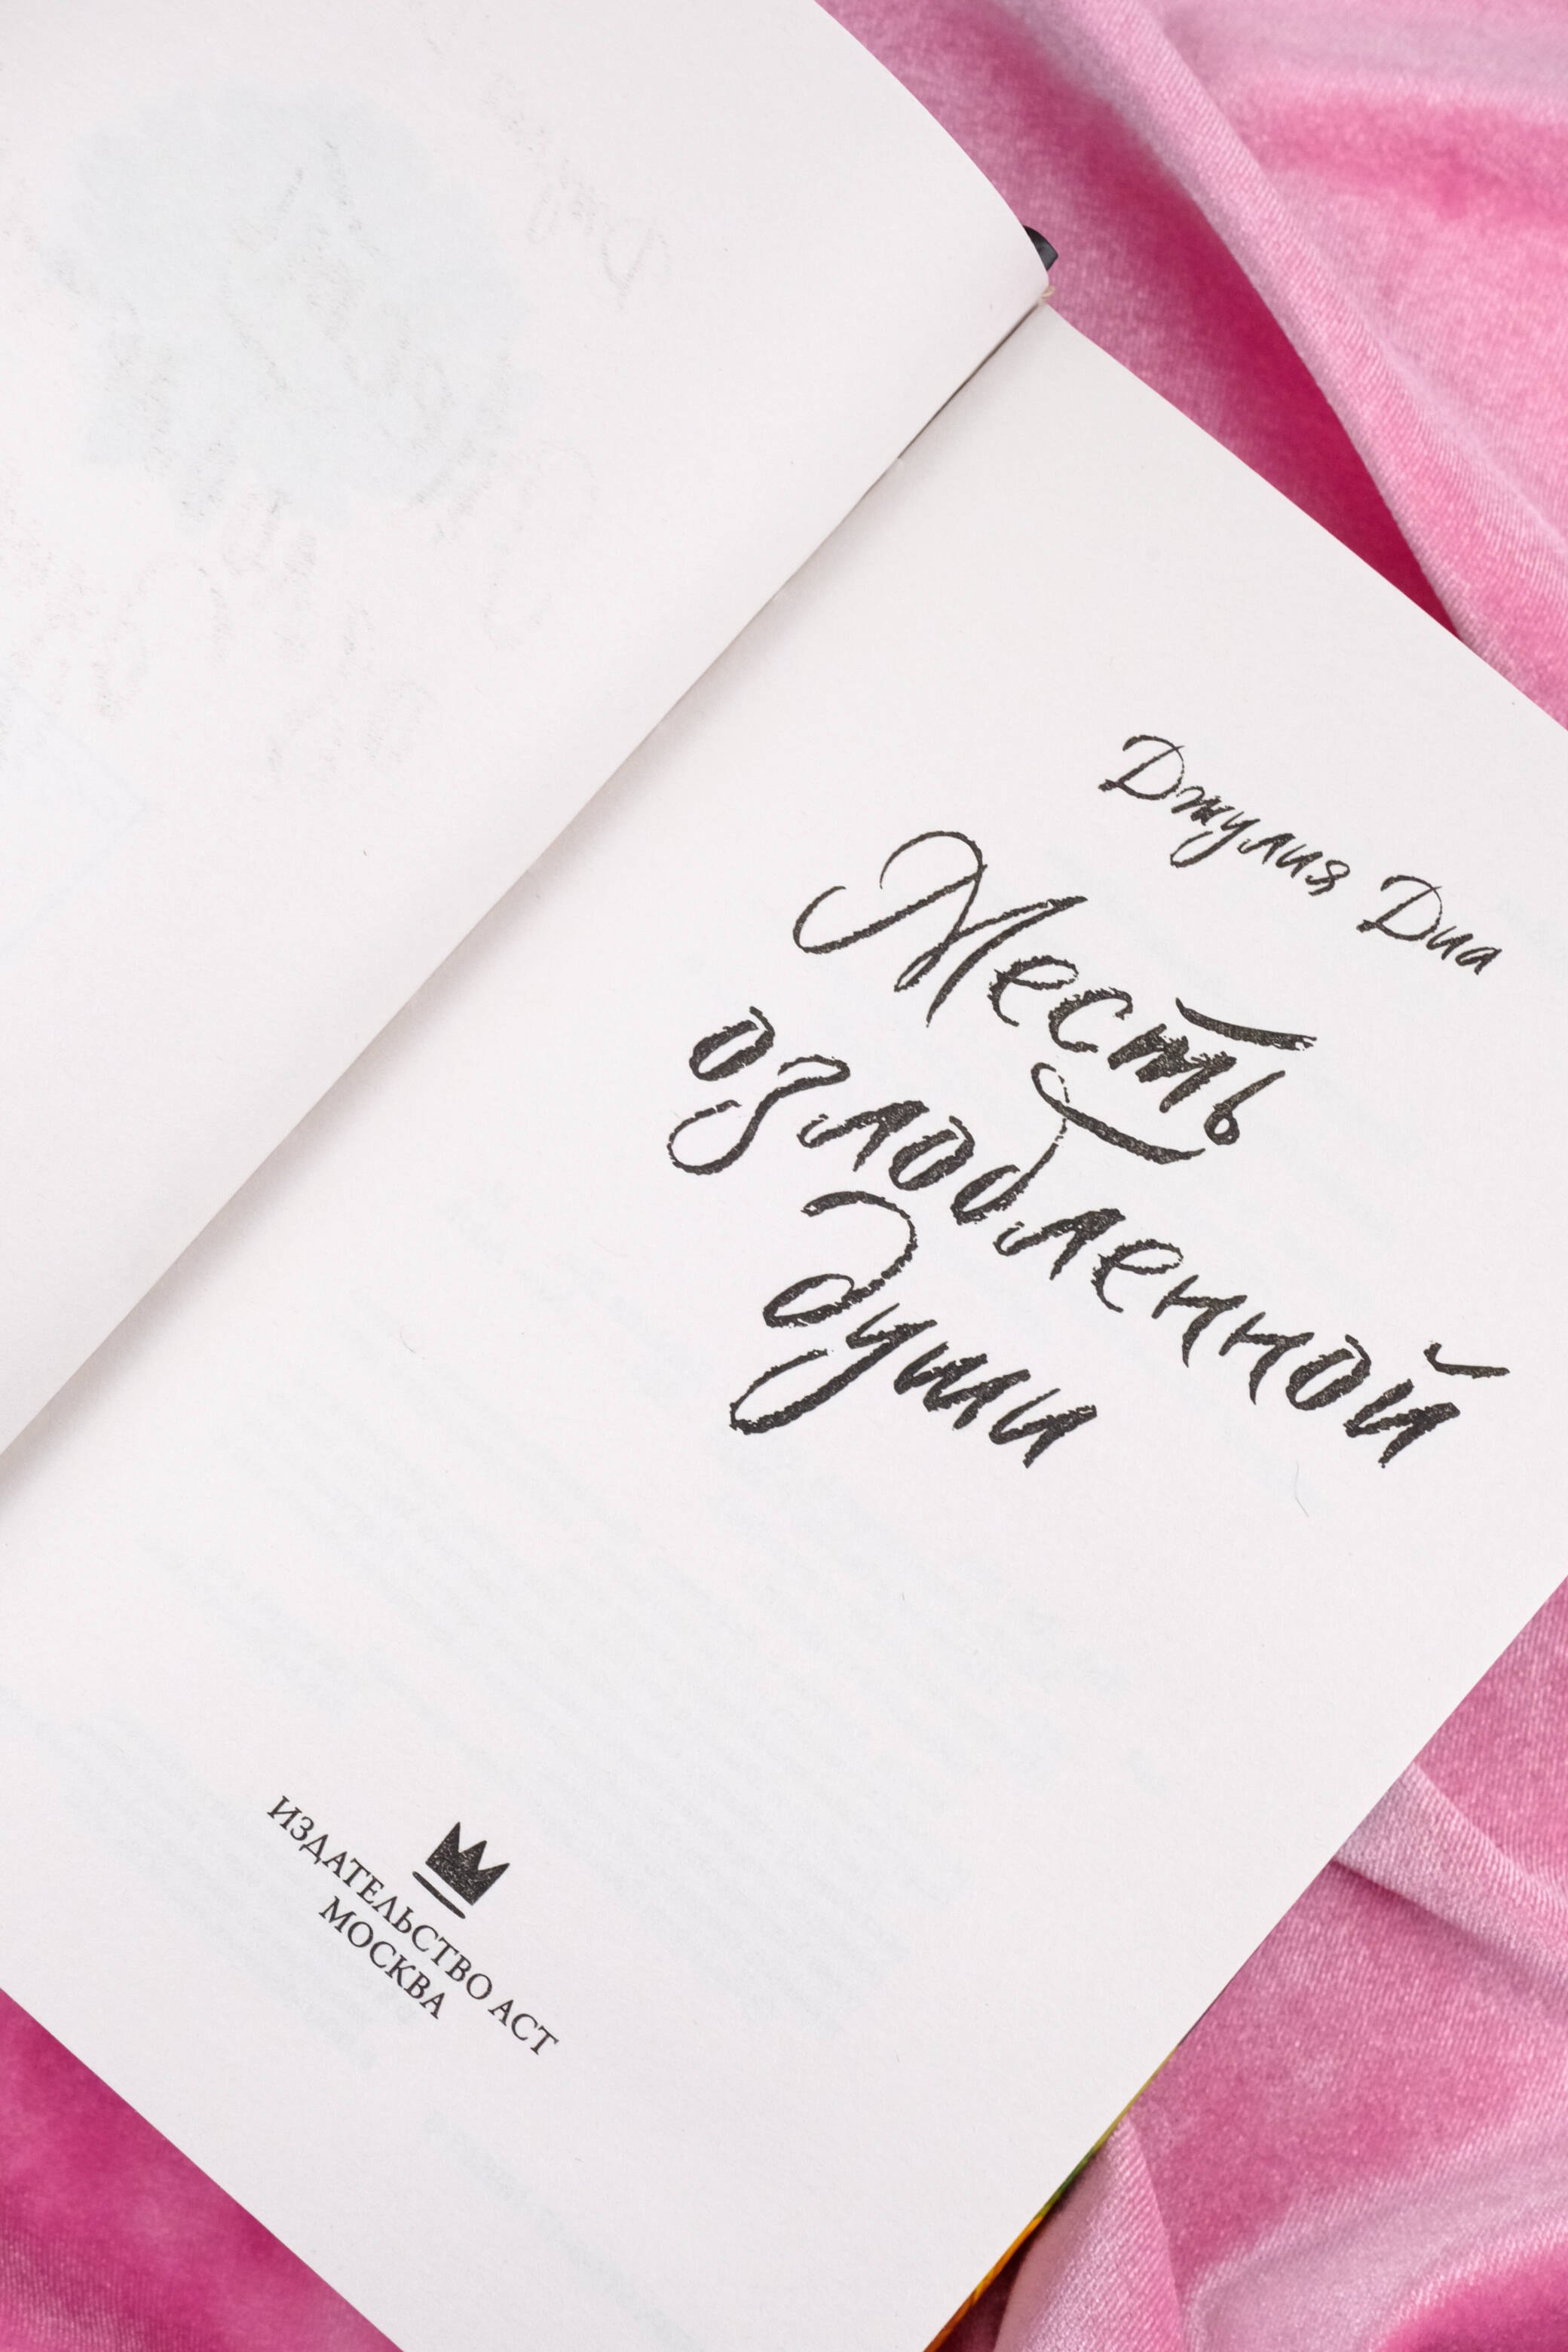 Джулия Диа
Месть
озлобленной
души
ИЗДАТЕЛЬСТВО АСТ
МОСКВА